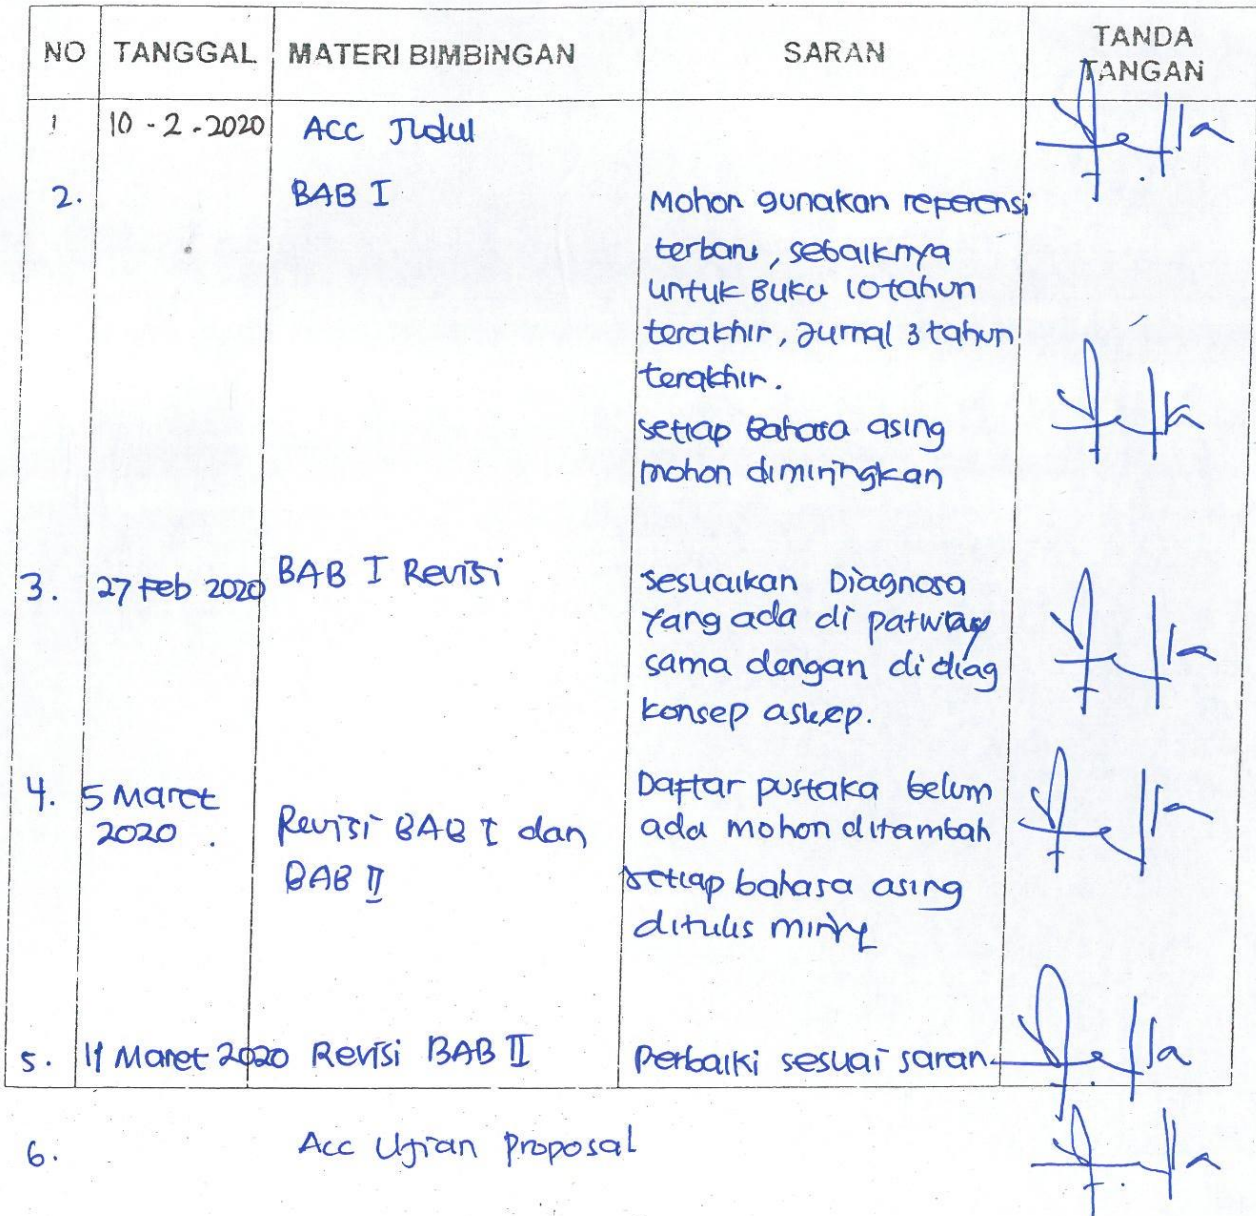 NO TANGGAL MATERI BIMBINGAN SARAN TANDA TANGAN
1 10-2-2020 ACC Judul
2. BAB I Mohon gunakan referensi
terbaru, sebaiknya
untuk Buku 10 tahun
terakhir, Jurnal 3 tahun
terakhir.
setiap Bahasa asing
mohon dimiringkan
3. 27 Feb 2020 BAB I Revisi Sesuaikan Diagnosa
yang ada di patway
sama dengan di diag
konsep askep.
4. 5 Maret Daftar pustaka belum
2020. Revisi BAB I dan ada mohon ditambah
BAB II setiap bahasa asing
ditulis miring
5. 11 Maret 2020 Revisi BAB II Perbaiki sesuai saran
6. Acc Ujian proposal